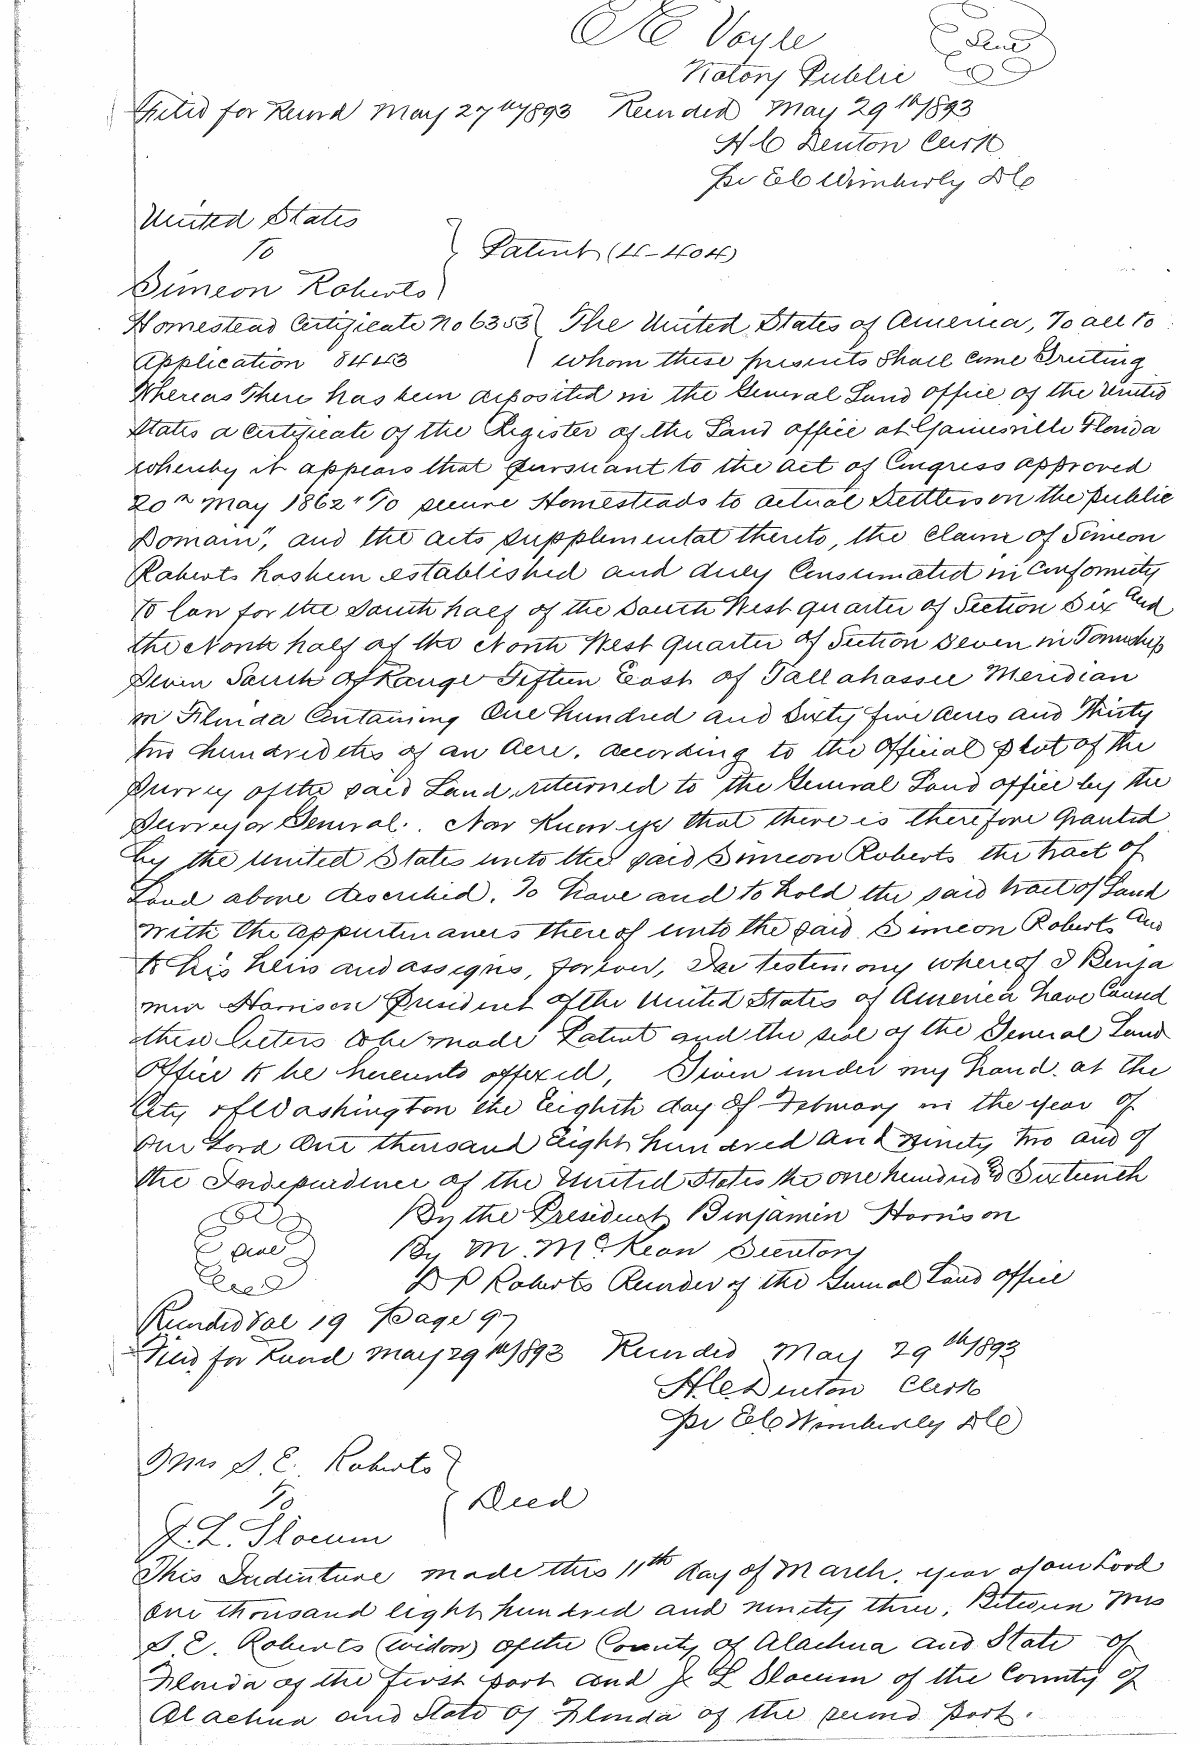 Voyle Seal
Notary Public
Filed for Record May 27th 1893 Recorded May 29th 1893
H C Denton Clerk
Per E C Wimberly D C
United States
To } Patent (4-404)
Simeon Roberts
Homestead Certificate No 6353 } The United States of America, To all to
Application 8443 whom these presents Shall Come Greeting
Whereas There has been deposited in the General Land office of the United
States a Certificate of the Register of the Land office at Gainesville Florida
whereby it appears that pursuant to the act of Congress approved
20th May 1862 "To secure Homesteads to actual Settlers on the public
Domain", and the acts supplemental thereto, the Claim of Simeon
Roberts has been established and duly Consumated in Conformity
to law for the South half of the South West quarter of Section Six and
the North half of the North West quarter of Section Seven in Township
Seven South of Range Fifteen East of Tallahassee Meridian
in Florida Containing One hundred and Sixty five acres and Thirty
two hundredths of an Acre. according to the Official plat of the
Survey of the said Land, returned to the General Land office by the
Surveyor General. Now Know ye that there is therefore Granted
by the United States unto the said Simeon Roberts the tract of
Land above described. To have and to hold the said tract of Land
with the appurtenances thereof unto the said Simeon Roberts and
to his heirs and assigns, forever, In testimony whereof I Benja
min Harrison President of the United States of America have Caused
these letters to be made Patent and the seal of the General Land
Office to be hereunto affixed, Given under my hand. at the
City of Washington the Eighth day of February in the year of
Our Lord One thousand Eight hundred and ninety two and of
the Independence of the United States the one hundred & Sixteenth
Seal By the President Benjamin Harrison
By M. McKean Secretary
D P Roberts Recorder of the General Land office
Recorded Vol 19 Page 97
Filed for Record May 29th 1893 Recorded May 29th 1893
H. C. Denton Clerk
Per E C Wimberly D C
Mrs S. E. Roberts
To } Deed
J. L. Slocum
This Indenture made this 11th day of March. year of our Lord
One thousand eight hundred and ninety three, Between Mrs
S. E. Roberts (widow) of the County of Alachua and State of
Florida of the first part and J L Slocum of the County of
Alachua and State of Florida of the second part.